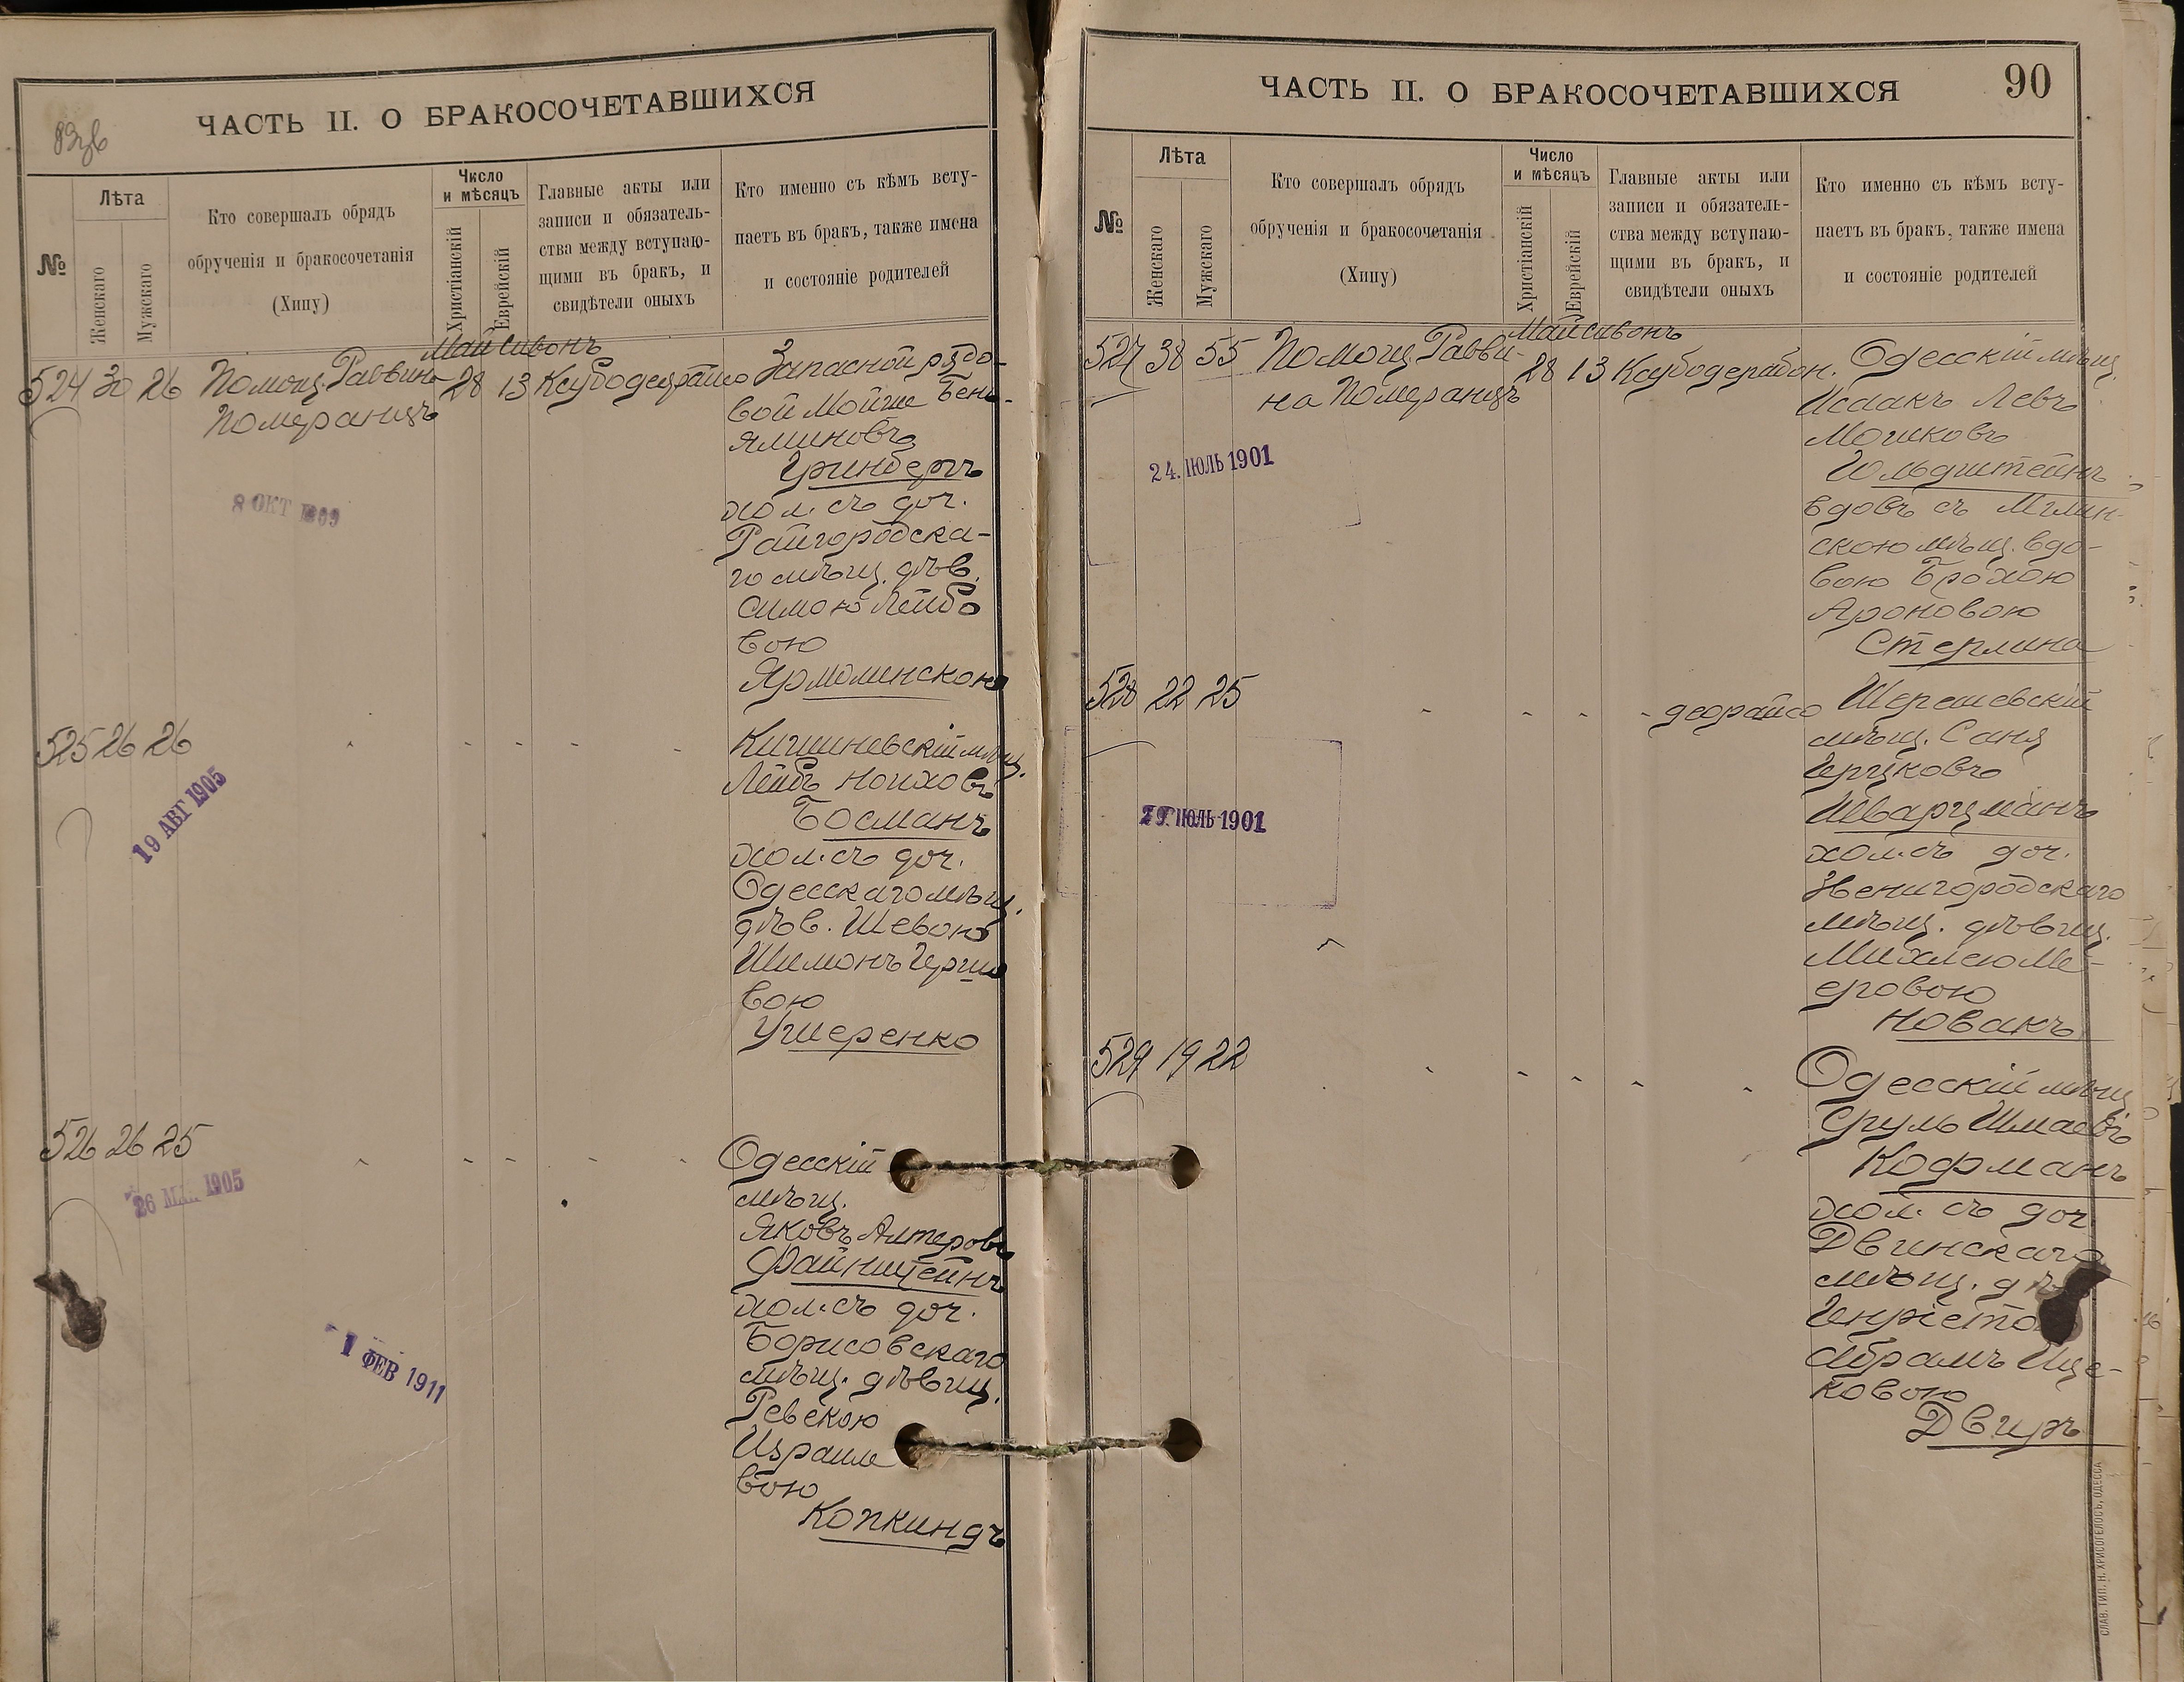 ЧАСТЬ II. О БРАКОСОЧЕТАВШИХСЯ
№
Лѣта
Женскаго
Мужскаго
Кто совершалъ обрядъ
обрученія и бракосочетанія
(Хипу)
Число
и мѣсяцъ
Христіанскій
Еврейскій
Главные акты или
записи и обязатель-
ства между вступаю-
щими въ бракъ, и
свидѣтели оныхъ
Кто именно съ кѣмъ всту-
паетъ въ бракъ, также имена
и состояніе родителей
Май Сивонъ
524 30 26 Помощ. Раввина 28 13
Померанцъ
Запасной рядо-
вой Мойше Бень-
яминовъ
Гринбергъ
хол. съ доч.
Райгородска-
го мѣщ. дѣв.
Симою Лейбо
вою
Ярмолинскою
8 ОКТ 1899
525 26 26
Кишиневскій мѣщ.
Лейбъ Ноиховъ
Босманъ
хол. съ доч.
Одесскаго мѣщ.
дѣв. Шевою
Шимонъ Гершо
вою
Ушеренко
19 АВГ 1905
526 26 25
Одесскій
мѣщ.
Яковъ Алтеровъ
Файнштейнъ
хол. съ доч.
Борисовскаго
мѣщ. дѣвиц.
Ревекою
Израиле
вою
Копкиндъ
26 МАЯ 1905
1 ФЕВ 1911
ЧАСТЬ II. О БРАКОСОЧЕТАВШИХСЯ
90
№
Лѣта
Женскаго
Мужскаго
Кто совершалъ обрядъ
обрученія и бракосочетанія
(Хипу)
Число
и мѣсяцъ
Христіанскій
Еврейскій
Главные акты или
записи и обязатель-
ства между вступаю-
щими въ бракъ, и
свидѣтели оныхъ
Кто именно съ кѣмъ всту-
паетъ въ бракъ, также имена
и состояніе родителей
Май Сивонъ
527 38 55 Помощ. Равви- 28 13
на Померанцъ
Одесскій мѣщ.
Исаакъ Левъ
Мошковъ
Гольдштейнъ
вдовъ съ Мглин-
скою мѣщ. вдо-
вою Брохою
Ароновою
Стерлина
24. ІЮЛЬ 1901
528 22 25
деорайсо
Шерешевскій
мѣщ. Саня
Герцковъ
Шварцманъ
хол. съ доч.
Звенигородскаго
мѣщ. дѣвиц.
Михлею Ме-
еровою
Новакъ
29. ІЮЛЬ 1901
529 19 22
Одесскій мѣщ
Сруль Шмаевъ
Кофманъ
хол. съ доч.
Двинскаго
мѣщ.
Абрамъ Ице-
ковою
Двиръ
СЛАВ. ТИП. Н. ХРИСОГЕЛОСЪ, ОДЕССА